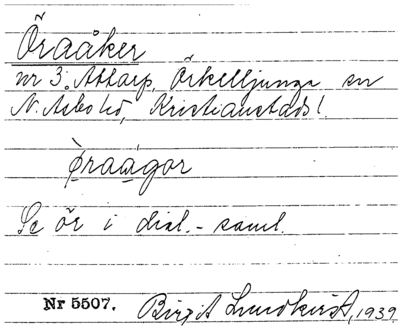 Öraåker
nr 3. Attarp, Örkelljunga sn
N. Åsbo hd, Kristianstads l.
ø̀raágor
Se ör i dial.-saml.
Nr 5507. Birgit Lundkvist, 1939